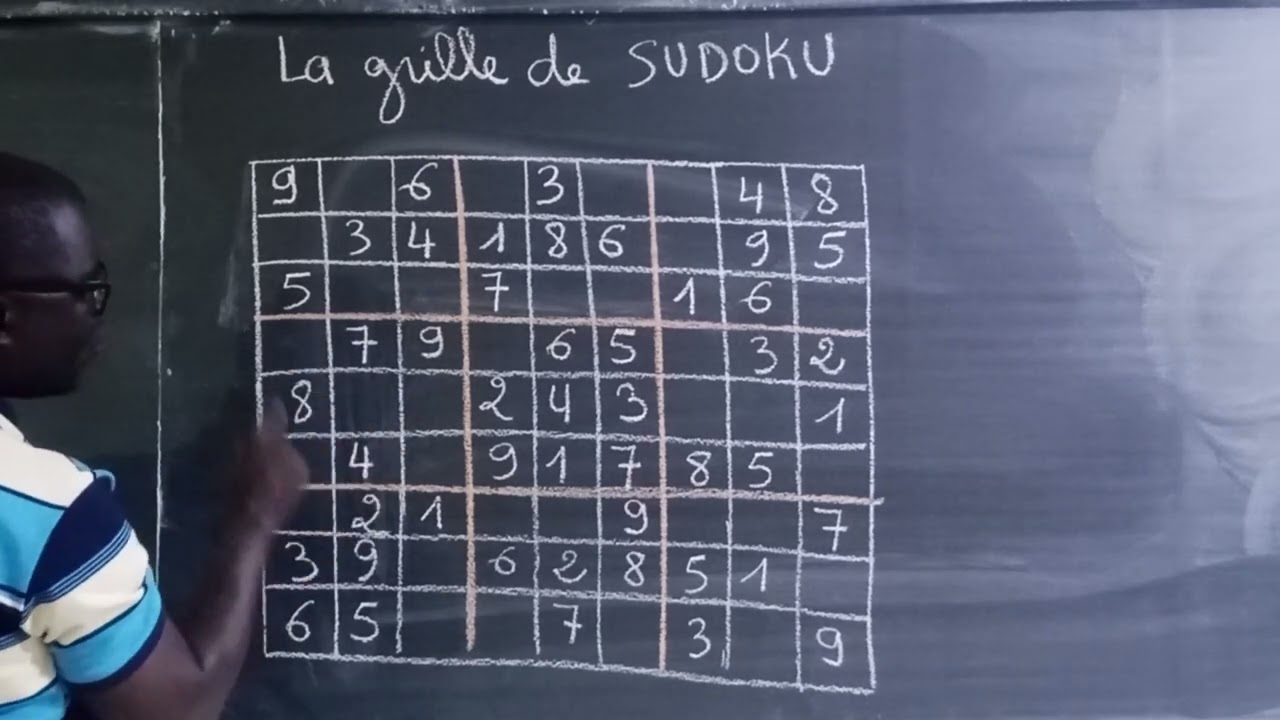 La grille de SUDOKU
9 6 3 4 8
3 4 1 8 6 9 5
5 7 1 6
7 9 6 5 3 2
8 2 4 3 1
4 9 1 7 8 5
2 1 9 7
3 9 6 2 8 5 1
6 5 7 3 9